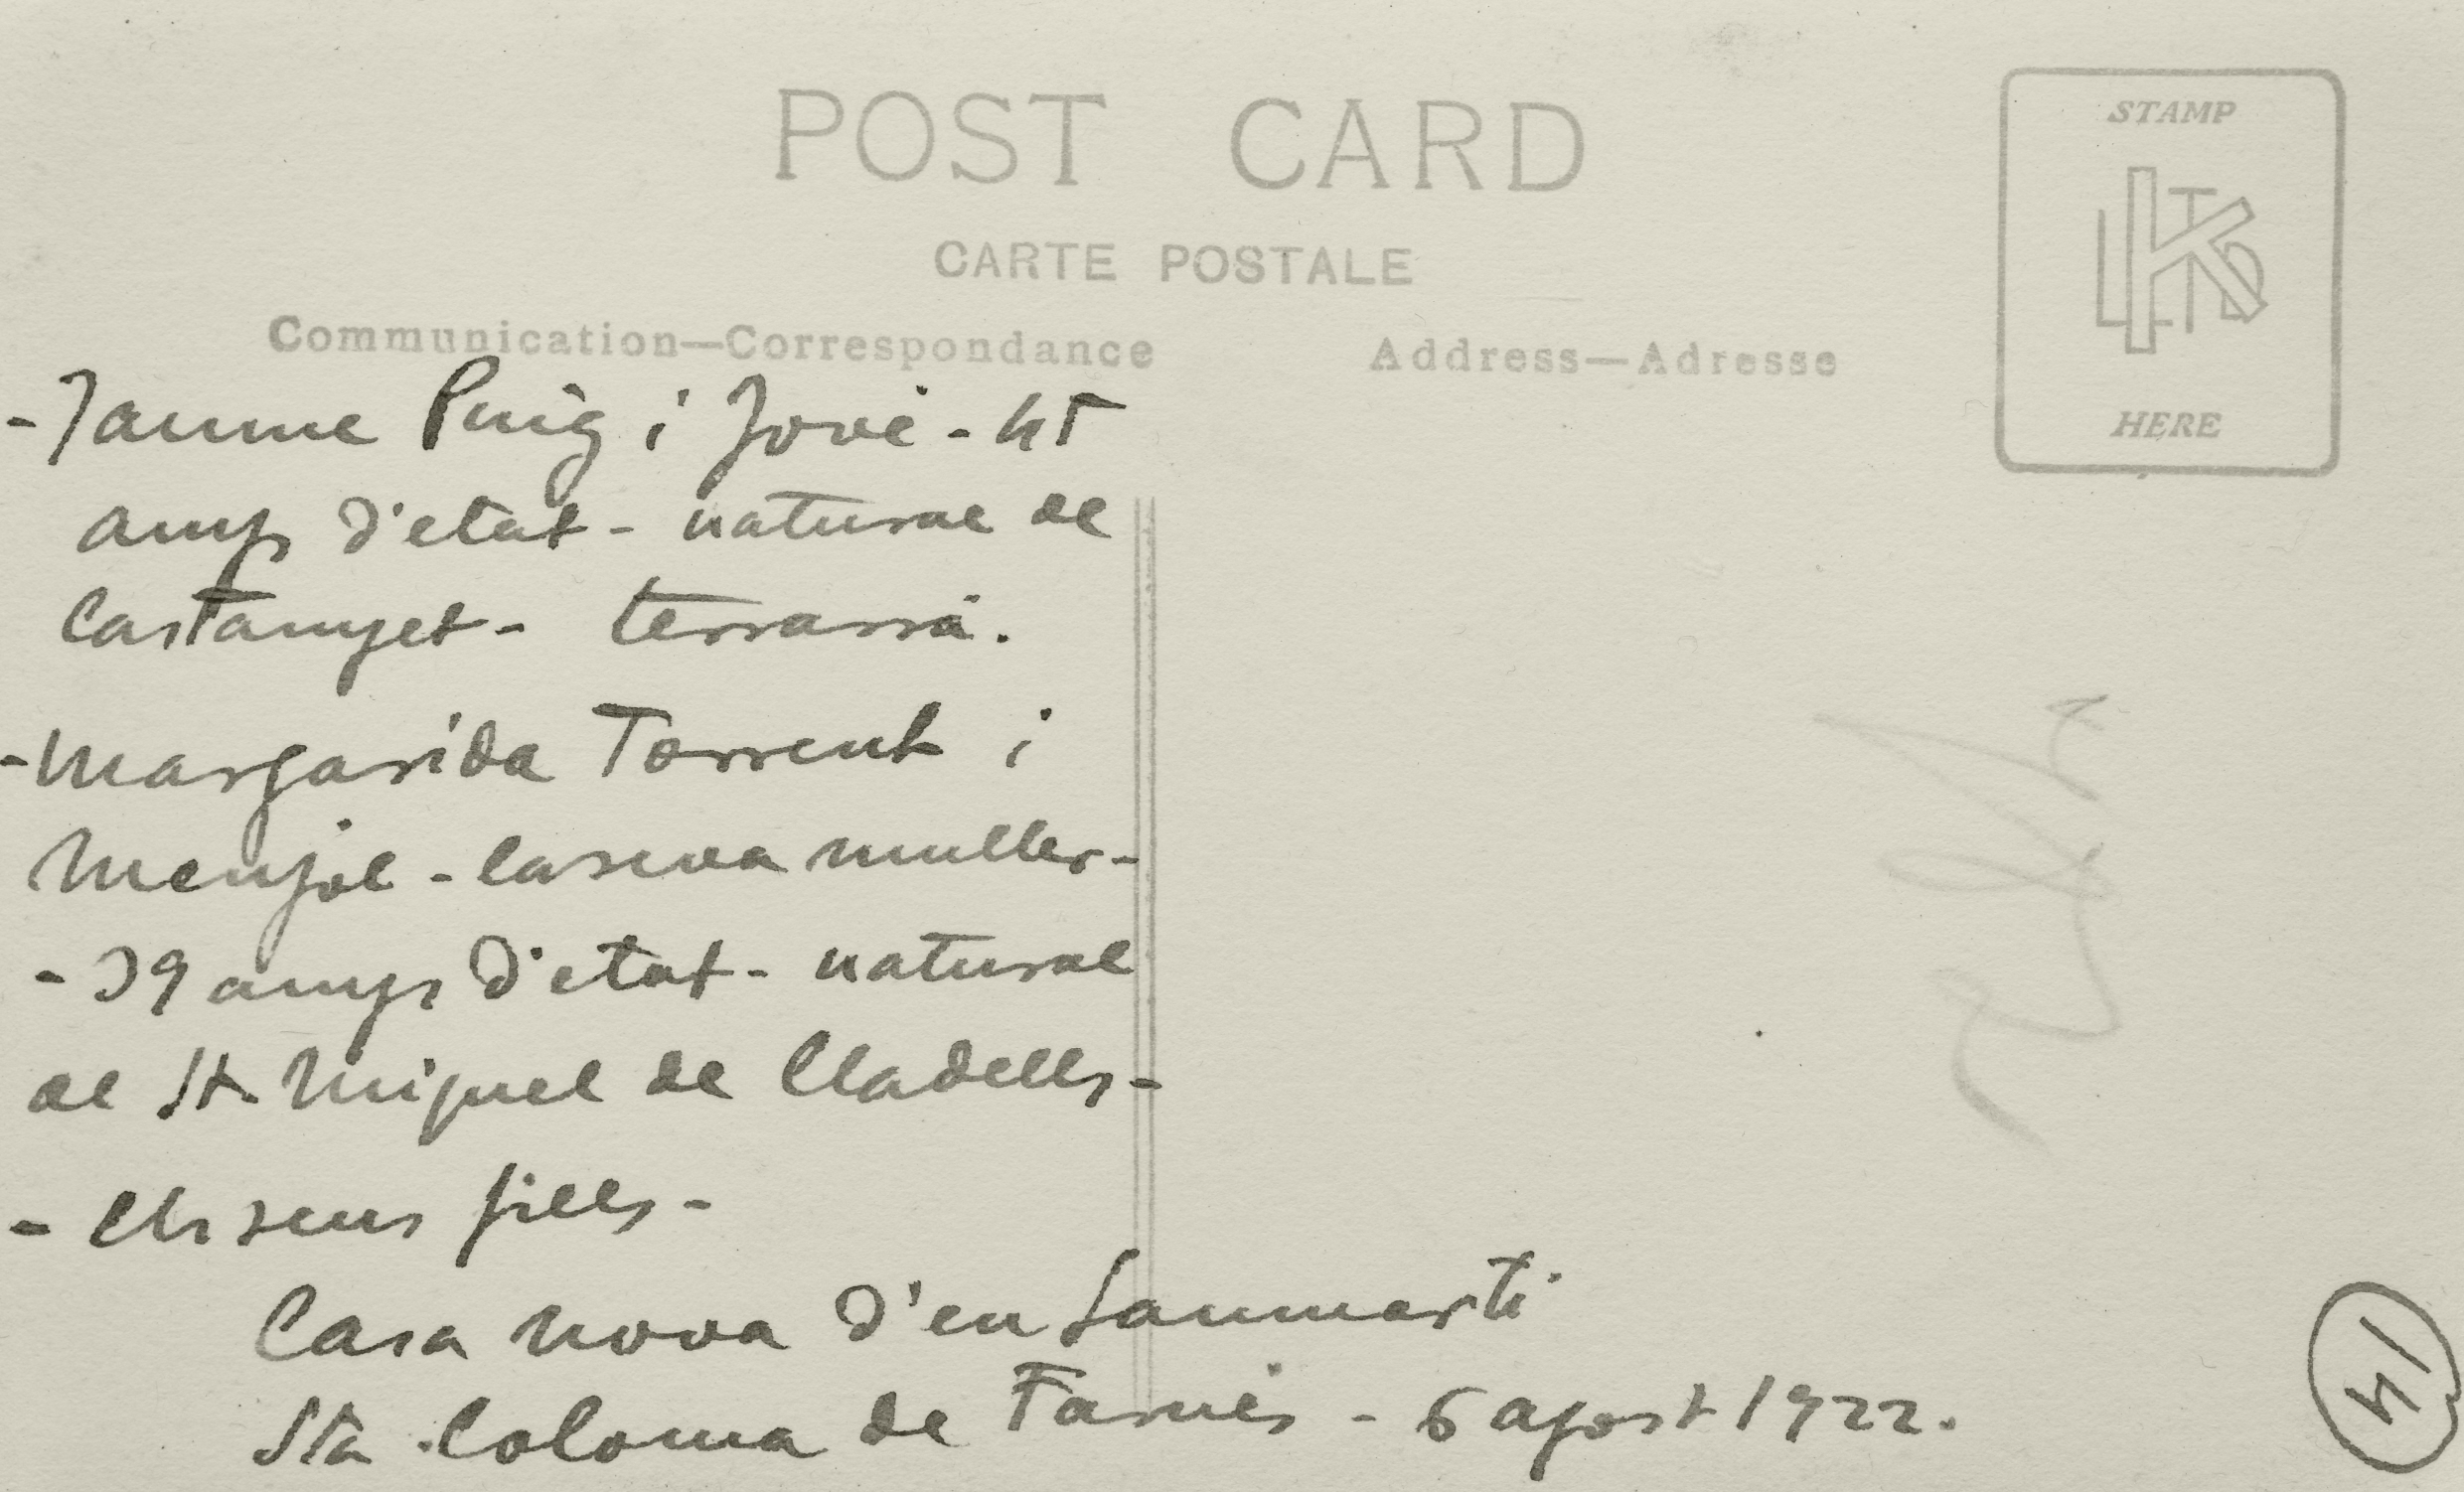 POST CARD
CARTE POSTALE
Communication—Correspondance
Address—Adresse
STAMP
HERE
- Jaume Puig i Jové - 45
anys d'etat - natural de
Castanyet - terrassà.
- Margarida Torrent i
Menjol - la seva muller -
- 39 anys d'etat - natural
de St. Miquel de Cladells -
- Els seus fills -
Casa nova d'en Sanmartí
Sta. Coloma de Farnés - 6 agost 1922.
14